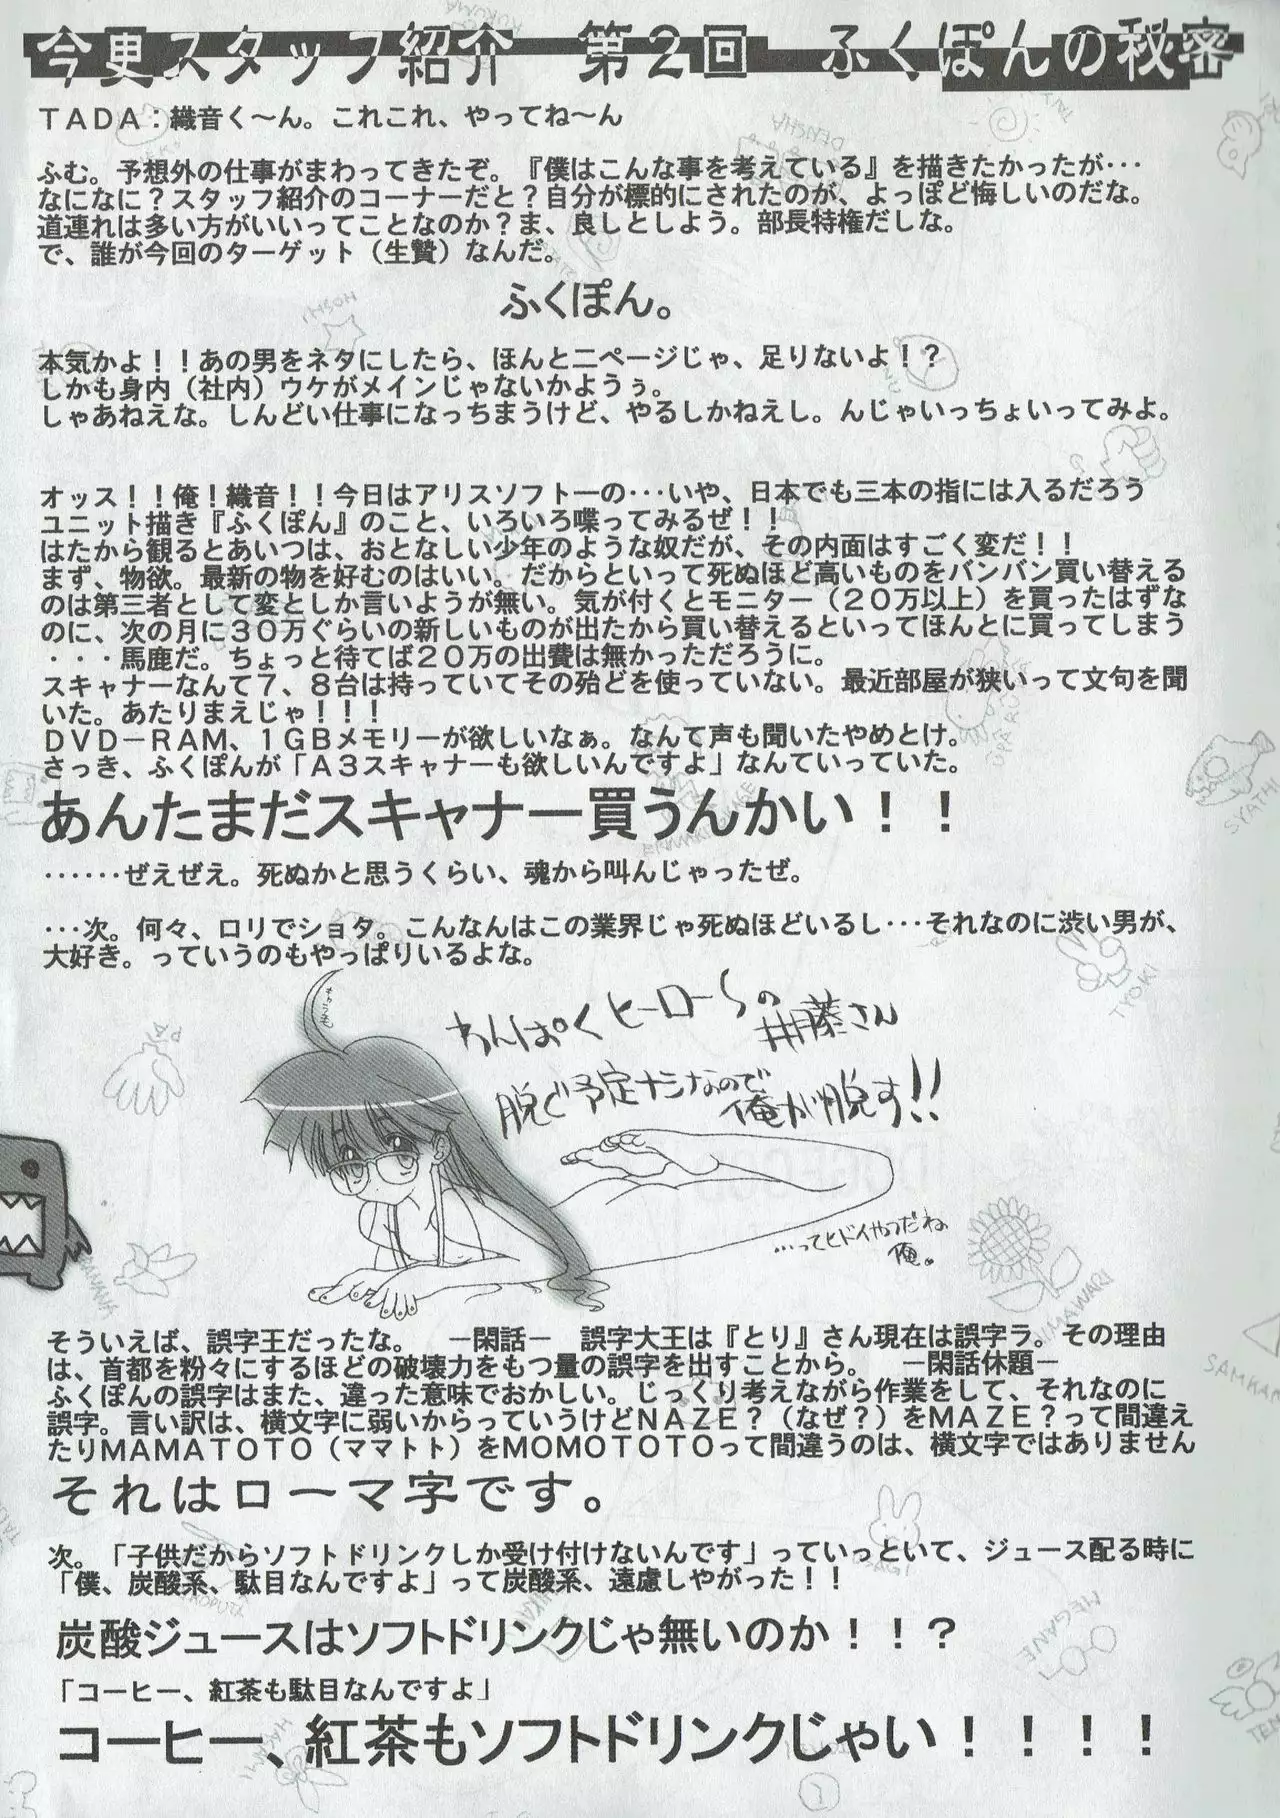 今更スタッフ紹介　第２回　ふくぽんの秘密
ＴＡＤＡ：織音く～ん。これこれ、やってね～ん
ふむ。予想外の仕事がまわってきたぞ。『僕はこんな事を考えている』を描きたかったが・・・
なになに？スタッフ紹介のコーナーだと？自分が標的にされたのが、よっぽど悔しいのだな。
道連れは多い方がいいってことなのか？ま、良しとしよう。部長特権だしな。
で、誰が今回のターゲット（生贄）なんだ。
ふくぽん。
本気かよ！！あの男をネタにしたら、ほんと二ページじゃ、足りないよ！？
しかも身内（社内）ウケがメインじゃないかようぅ。
しゃあねえな。しんどい仕事になっちまうけど、やるしかねえし。んじゃいっちょいってみよ。
オッス！！俺！織音！！今日はアリスソフト一の・・・いや、日本でも三本の指には入るだろう
ユニット描き『ふくぽん』のこと、いろいろ喋ってみるぜ！！
はたから観るとあいつは、おとなしい少年のような奴だが、その内面はすごく変だ！！
まず、物欲。最新の物を好むのはいい。だからといって死ぬほど高いものをバンバン買い替える
のは第三者として変としか言いようが無い。気が付くとモニター（２０万以上）を買ったはずな
のに、次の月に３０万ぐらいの新しいものが出たから買い替えるといってほんとに買ってしまう
・・・馬鹿だ。ちょっと待てば２０万の出費は無かっただろうに。
スキャナーなんて７、８台は持っていてその殆どを使っていない。最近部屋が狭いって文句を聞
いた。あたりまえじゃ！！！
ＤＶＤ－ＲＡＭ、１ＧＢメモリーが欲しいなぁ。なんて声も聞いたやめとけ。
さっき、ふくぽんが「Ａ３スキャナーも欲しいんですよ」なんていっていた。
あんたまだスキャナー買うんかい！！
・・・・・・ぜえぜえ。死ぬかと思うくらい、魂から叫んじゃったぜ。
・・・次。何々、ロリでショタ。こんなんはこの業界じゃ死ぬほどいるし・・・それなのに渋い男が、
大好き。っていうのもやっぱりいるよな。
わんぱくヒーロー～の
井藤さん
脱ぐ予定ナシなので
俺が脱す!!
…ってヒドイやつだね
俺。
そういえば、誤字王だったな。　－閑話－　誤字大王は『とり』さん現在は誤字ラ。その理由
は、首都を粉々にするほどの破壊力をもつ量の誤字を出すことから。　－閑話休題－
ふくぽんの誤字はまた、違った意味でおかしい。じっくり考えながら作業をして、それなのに
誤字。言い訳は、横文字に弱いからっていうけどＮＡＺＥ？（なぜ？）をＭＡＺＥ？って間違え
たりＭＡＭＡＴＯＴＯ（ママトト）をＭＯＭＯＴＯＴＯって間違うのは、横文字ではありません
それはローマ字です。
次。「子供だからソフトドリンクしか受け付けないんです」っていっといて、ジュース配る時に
「僕、炭酸系、駄目なんですよ」って炭酸系、遠慮しやがった！！
炭酸ジュースはソフトドリンクじゃ無いのか！！？
「コーヒー、紅茶も駄目なんですよ」
コーヒー、紅茶もソフトドリンクじゃい！！！！
DENSHA
HOSHI
SYATHI
TYOKI
PA
BANANA
HIMAWARI
USAGI
MEGANE